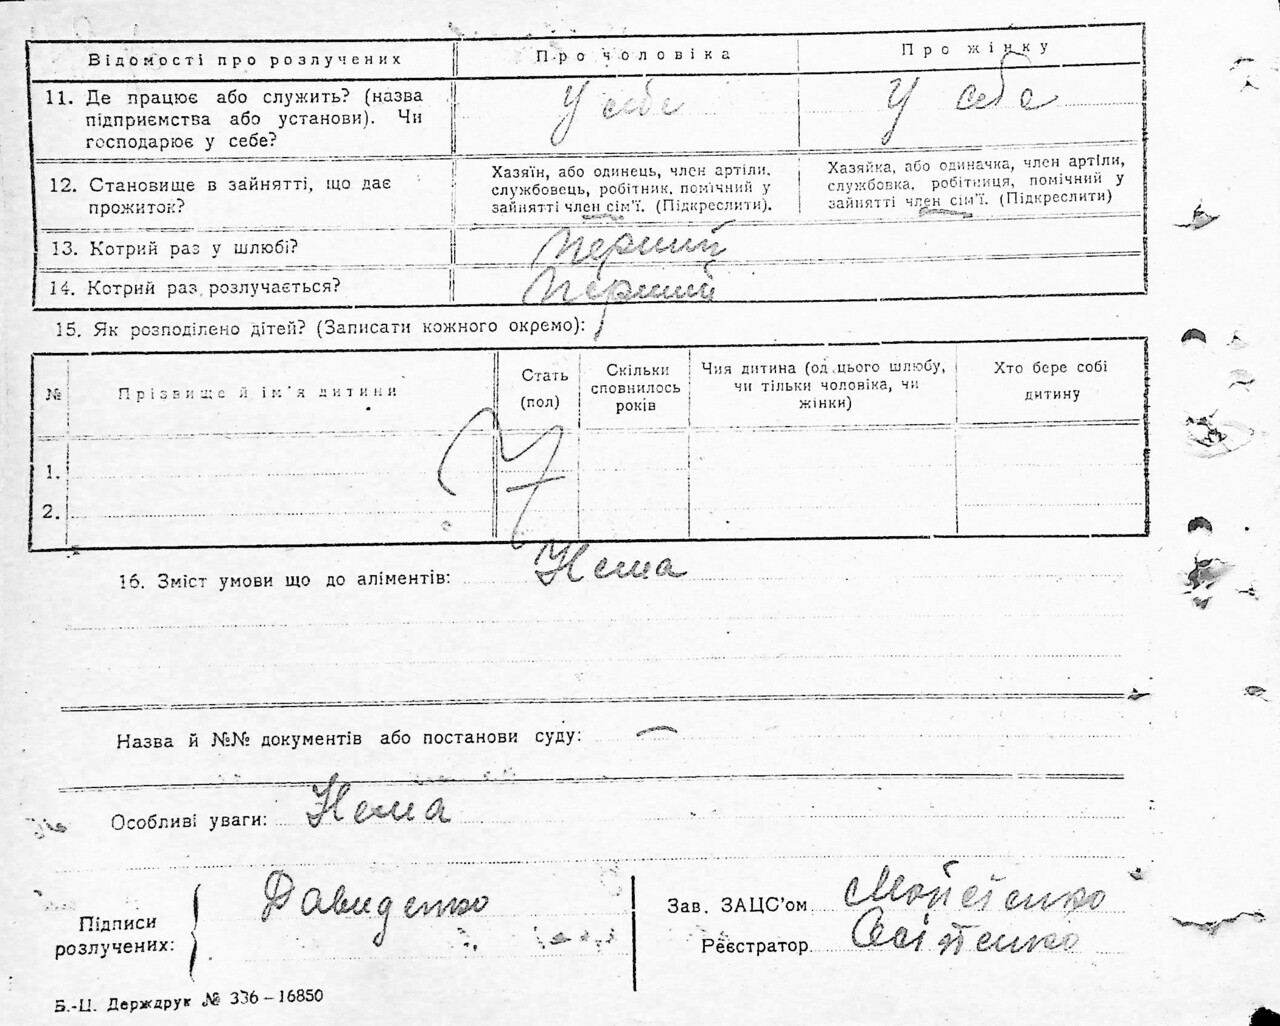 Відомості про розлучених Про чоловіка Про жінку
11. Де працює або служить? (назва підприємства або установи). Чи господарює у себе? У себе У себе
12. Становище в зайнятті, що дає прожиток? Хазяїн, або одинець, член артіли, службовець, робітник, помічний у зайнятті член сім'ї. (Підкреслити). Хазяйка, або одиначка, член артіли, службовка, робітниця, помічний у зайнятті член сім'ї. (Підкреслити)
13. Котрий раз у шлюбі? Перший
14. Котрий раз розлучається? Перший
15. Як розподілено дітей? (Записати кожного окремо):
№ Прізвище й ім'я дитини Стать (пол) Скільки сповнилось років Чия дитина (од цього шлюбу, чи тільки чоловіка, чи жінки) Хто бере собі дитину
1.
2.
16. Зміст умови що до аліментів: Нема
Назва й №№ документів або постанови суду: —
Особливі уваги: Нема
Підписи розлучених: Давиденко
Зав. ЗАЦС'ом Мойсієнко
Реєстратор
Б.-Ц. Держдрук № 336–16850